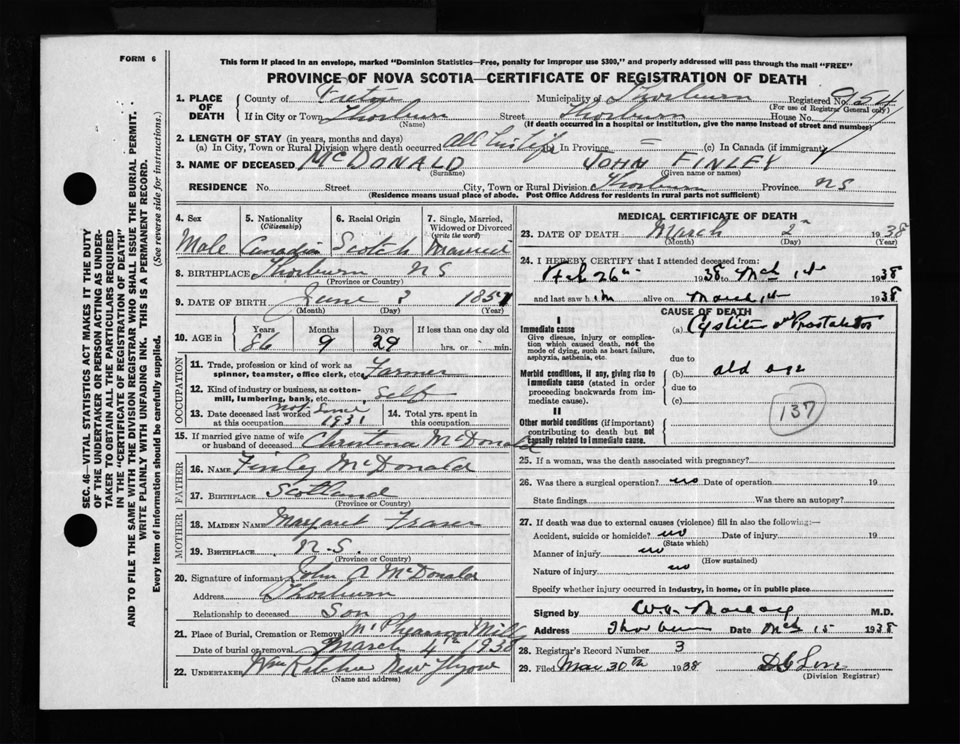 FORM 6
This form if placed in an envelope, marked "Dominion Statistics—Free, penalty for improper use $300," and properly addressed will pass through the mail "FREE"
PROVINCE OF NOVA SCOTIA—CERTIFICATE OF REGISTRATION OF DEATH
1. PLACE OF DEATH { County of Pictou Municipality of Thorburn Registered No. 954
(For use of Registrar General only)
If in City or Town Thorburn Street Thorburn House No.
(Name) (If death occurred in a hospital or institution, give the name instead of street and number)
2. LENGTH OF STAY (in years, months and days)
(a) In City, Town or Rural Division where death occurred all his life (b) In Province = (c) In Canada (if immigrant)
3. NAME OF DECEASED McDONALD JOHN FINLEY
(Surname) (Given name or names)
RESIDENCE No. Street City, Town or Rural Division Thorburn Province NS
(Residence means usual place of abode. Post Office Address for residents in rural parts not sufficient)
4. Sex
Male
5. Nationality
(Citizenship)
Canadian
6. Racial Origin
Scotch
7. Single, Married, Widowed or Divorced
(write the word)
Married
8. BIRTHPLACE Thorburn NS
(Province or Country)
9. DATE OF BIRTH June 3 1851
(Month) (Day) (Year)
10. AGE in Years Months Days If less than one day old
86 9 29 hrs. or min.
OCCUPATION
11. Trade, profession or kind of work as spinner, teamster, office clerk, etc. Farmer
12. Kind of industry or business, as cotton-mill, lumbering, bank, etc. Self
13. Date deceased last worked at this occupation not since 1931
14. Total yrs. spent in this occupation
15. If married give name of wife or husband of deceased Christena McDonald
FATHER
16. Name Finly McDonald
17. Birthplace Scotland
(Province or Country)
MOTHER
18. MAIDEN NAME Margaret Fraser
19. BIRTHPLACE N.S.
(Province or Country)
20. Signature of informant John A McDonald
Address Thorburn
Relationship to deceased Son
21. Place of Burial, Cremation or Removal McPhersons Mills
Date of burial or removal March 4th 1938
22. UNDERTAKER Wm Ritchie New Glasgow
(Name and address)
MEDICAL CERTIFICATE OF DEATH
23. DATE OF DEATH March 2 1938
(Month) (Day) (Year)
24. I HEREBY CERTIFY that I attended deceased from:
Feb 26th 1938 to Mch 1st 1938
and last saw him alive on March 1st 1938
CAUSE OF DEATH
I
Immediate cause
Give disease, injury or complication which caused death, not the mode of dying, such as heart failure, asphyxia, asthenia, etc.
(a) Cystitis
due to
Morbid conditions, if any, giving rise to immediate cause (stated in order proceeding backwards from immediate cause).
(b) old age
due to
(c)
137
II
Other morbid conditions (if important) contributing to death but not causally related to immediate cause.
25. If a woman, was the death associated with pregnancy?
26. Was there a surgical operation? no Date of operation 19
State findings Was there an autopsy?
27. If death was due to external causes (violence) fill in also the following:—
Accident, suicide or homicide? no Date of injury 19
(State which)
Manner of injury no
(How sustained)
Nature of injury no
Specify whether injury occurred in industry, in home, or in public place
Signed by M.D.
Address Thorburn Date Mch 15 1938
28. Registrar's Record Number 3
29. Filed Mar 30th 1938
(Division Registrar)
SEC. 46—VITAL STATISTICS ACT MAKES IT THE DUTY
OF THE UNDERTAKER OR PERSON ACTING AS UNDER-
TAKER TO OBTAIN ALL THE PARTICULARS REQUIRED
IN THE "CERTIFICATE OF REGISTRATION OF DEATH"
AND TO FILE THE SAME WITH THE DIVISION REGISTRAR WHO SHALL ISSUE THE BURIAL PERMIT.
WRITE PLAINLY WITH UNFADING INK. THIS IS A PERMANENT RECORD.
Every item of Information should be carefully supplied. (See reverse side for instructions.)